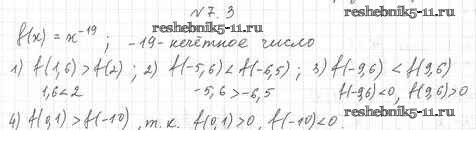 №7.3
reshebnik5-11.ru
f(x) = x⁻¹⁹; -19 - нечётное число
reshebnik5-11.ru
1) f(1,6) > f(2); 2) f(-5,6) < f(-6,5); 3) f(-9,6) < f(9,6)
1,6 < 2 -5,6 > -6,5 f(-9,6) < 0, f(9,6) > 0
reshebnik5-11.ru
4) f(0,1) > f(-10), т.к. f(0,1) > 0, f(-10) < 0.
reshebnik5-11.ru